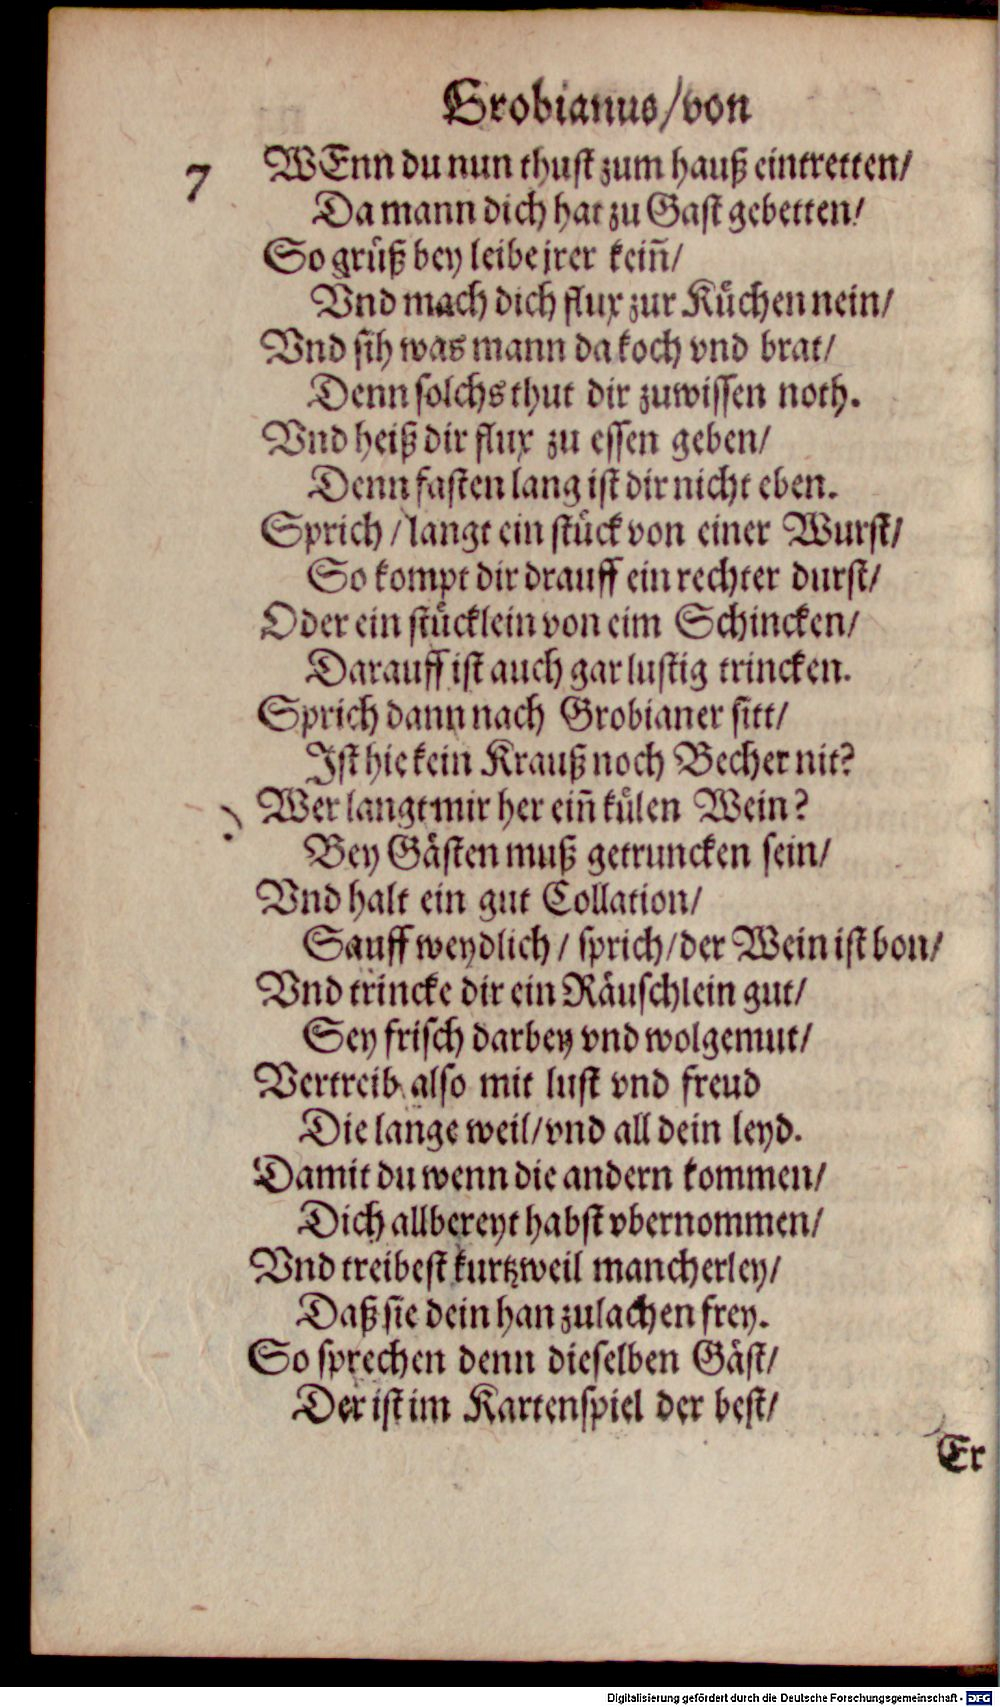 Grobianus/von
7 WEnn du nun thust zum hauß eintretten/
Da mann dich hat zu Gast gebetten/
So grüß bey leibe jrer keiñ/
Vnd mach dich flux zur Küchen nein/
Vnd sih was mann da koch vnd brat/
Denn solchs thut dir zuwissen noth.
Vnd heiß dir flux zu essen geben/
Denn fasten lang ist dir nicht eben.
Sprich/langt ein stück von einer Wurst/
So kompt dir drauff ein rechter durst/
Oder ein stücklein von eim Schincken/
Darauff ist auch gar lustig trincken.
Sprich dann nach Grobianer sitt/
Ist hie kein Krauß noch Becher nit?
Wer langt mir her eiñ külen Wein?
Bey Gästen muß getruncken sein/
Vnd halt ein gut Collation/
Sauff weydlich/ sprich/der Wein ist bon/
Vnd trincke dir ein Räuschlein gut/
Sey frisch darbey vnd wolgemut/
Vertreib also mit lust vnd freud
Die lange weil/vnd all dein leyd.
Damit du wenn die andern kommen/
Dich allbereyt habst vbernommen/
Vnd treibest kurtzweil mancherley/
Daß sie dein han zulachen frey.
So sprechen denn dieselben Gäst/
Der ist im Kartenspiel der best/
Er
Digitalisierung gefördert durch die Deutsche Forschungsgemeinschaft - DFG